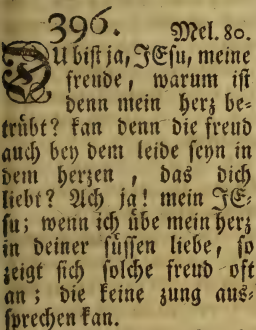 396. Mel. 80.
DU bist ja, JEsu, meine
freude, warum ist
denn mein herz be-
trübt? kan denn die freud
auch bey dem leide seyn in
dem herzen, das dich
liebt? Ach ja! mein JE-
su; wenn ich übe mein herz
in deiner süssen liebe, so
zeigt sich solche freud oft
an; die keine zung aus-
sprechen kan.